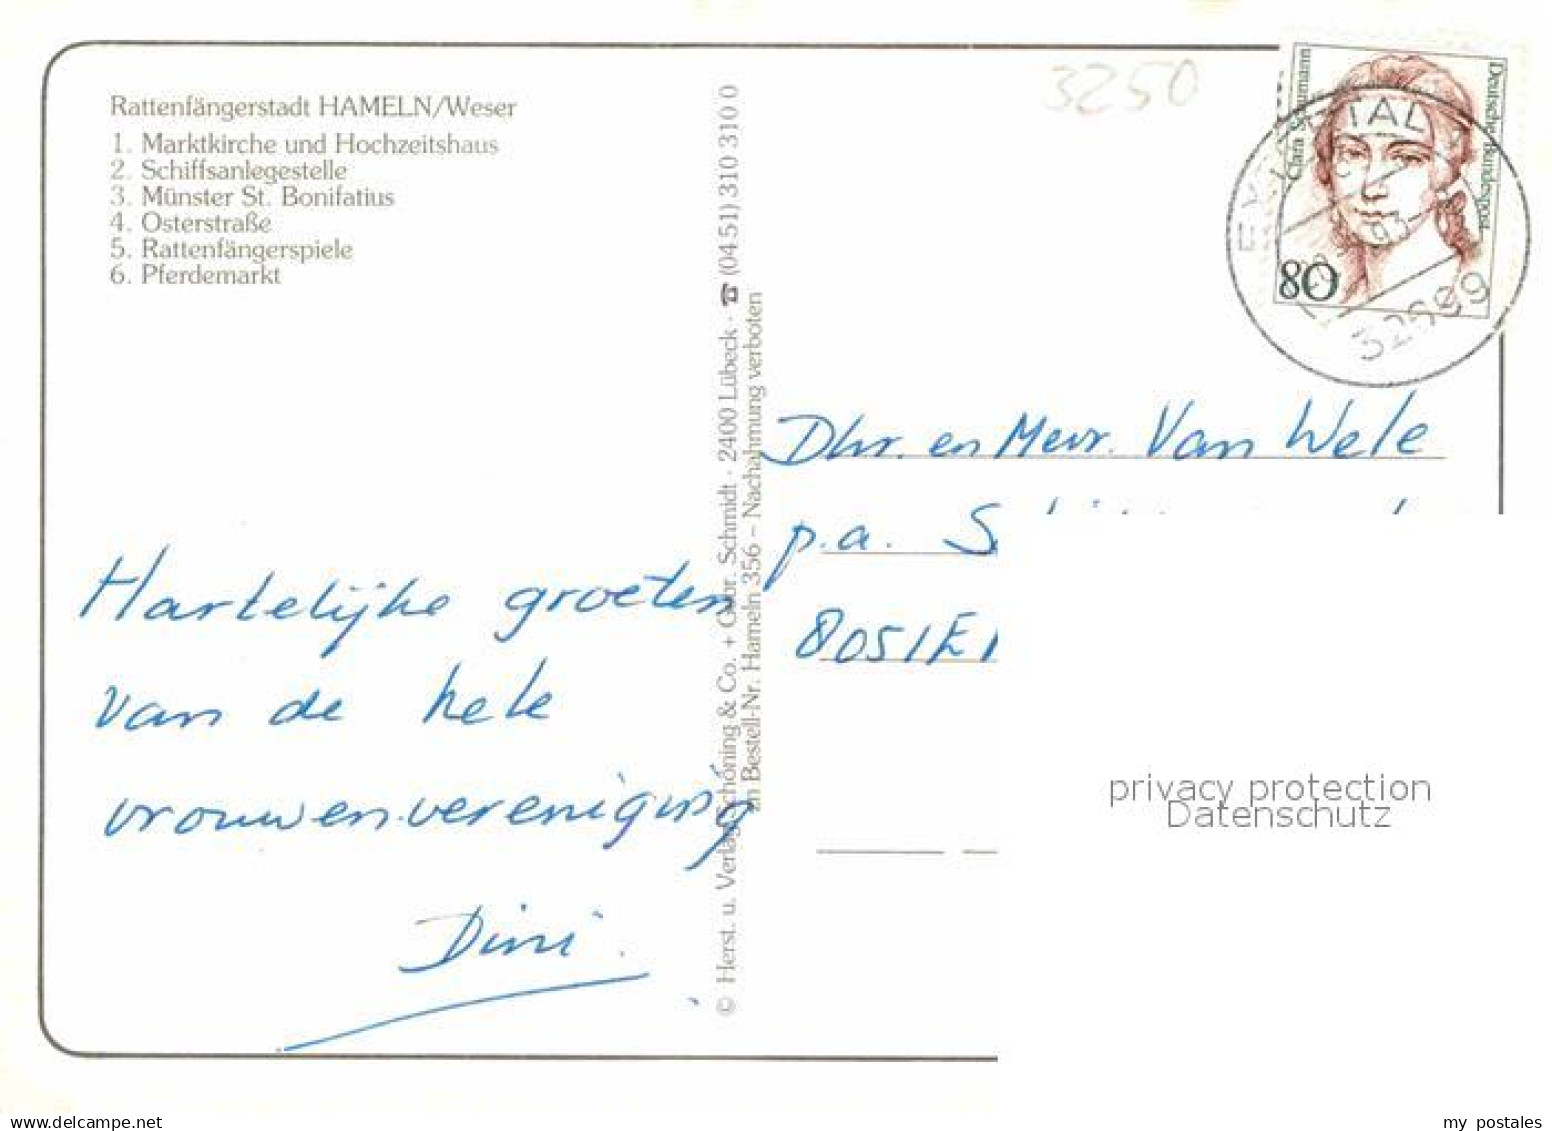 Rattenfängerstadt HAMELN/Weser
1. Marktkirche und Hochzeitshaus
2. Schiffsanlegestelle
3. Münster St. Bonifatius
4. Osterstraße
5. Rattenfängerspiele
6. Pferdemarkt
Hartelijke groeten
van de hele
vrouwenvereniging
Dini.
© Herst. u. Verlag Schöning & Co. + Gebr. Schmidt · 2400 Lübeck · ☎ (04 51) 310 310 0
Bestell-Nr. Hameln 356 – Nachahmung verboten
3250
Clara Schumann
Deutsche Bundespost
80
EXTERTAL
93
32699
Dhr. en Mevr. Van Wele
p.a.
8051E
privacy protection
Datenschutz
my postales